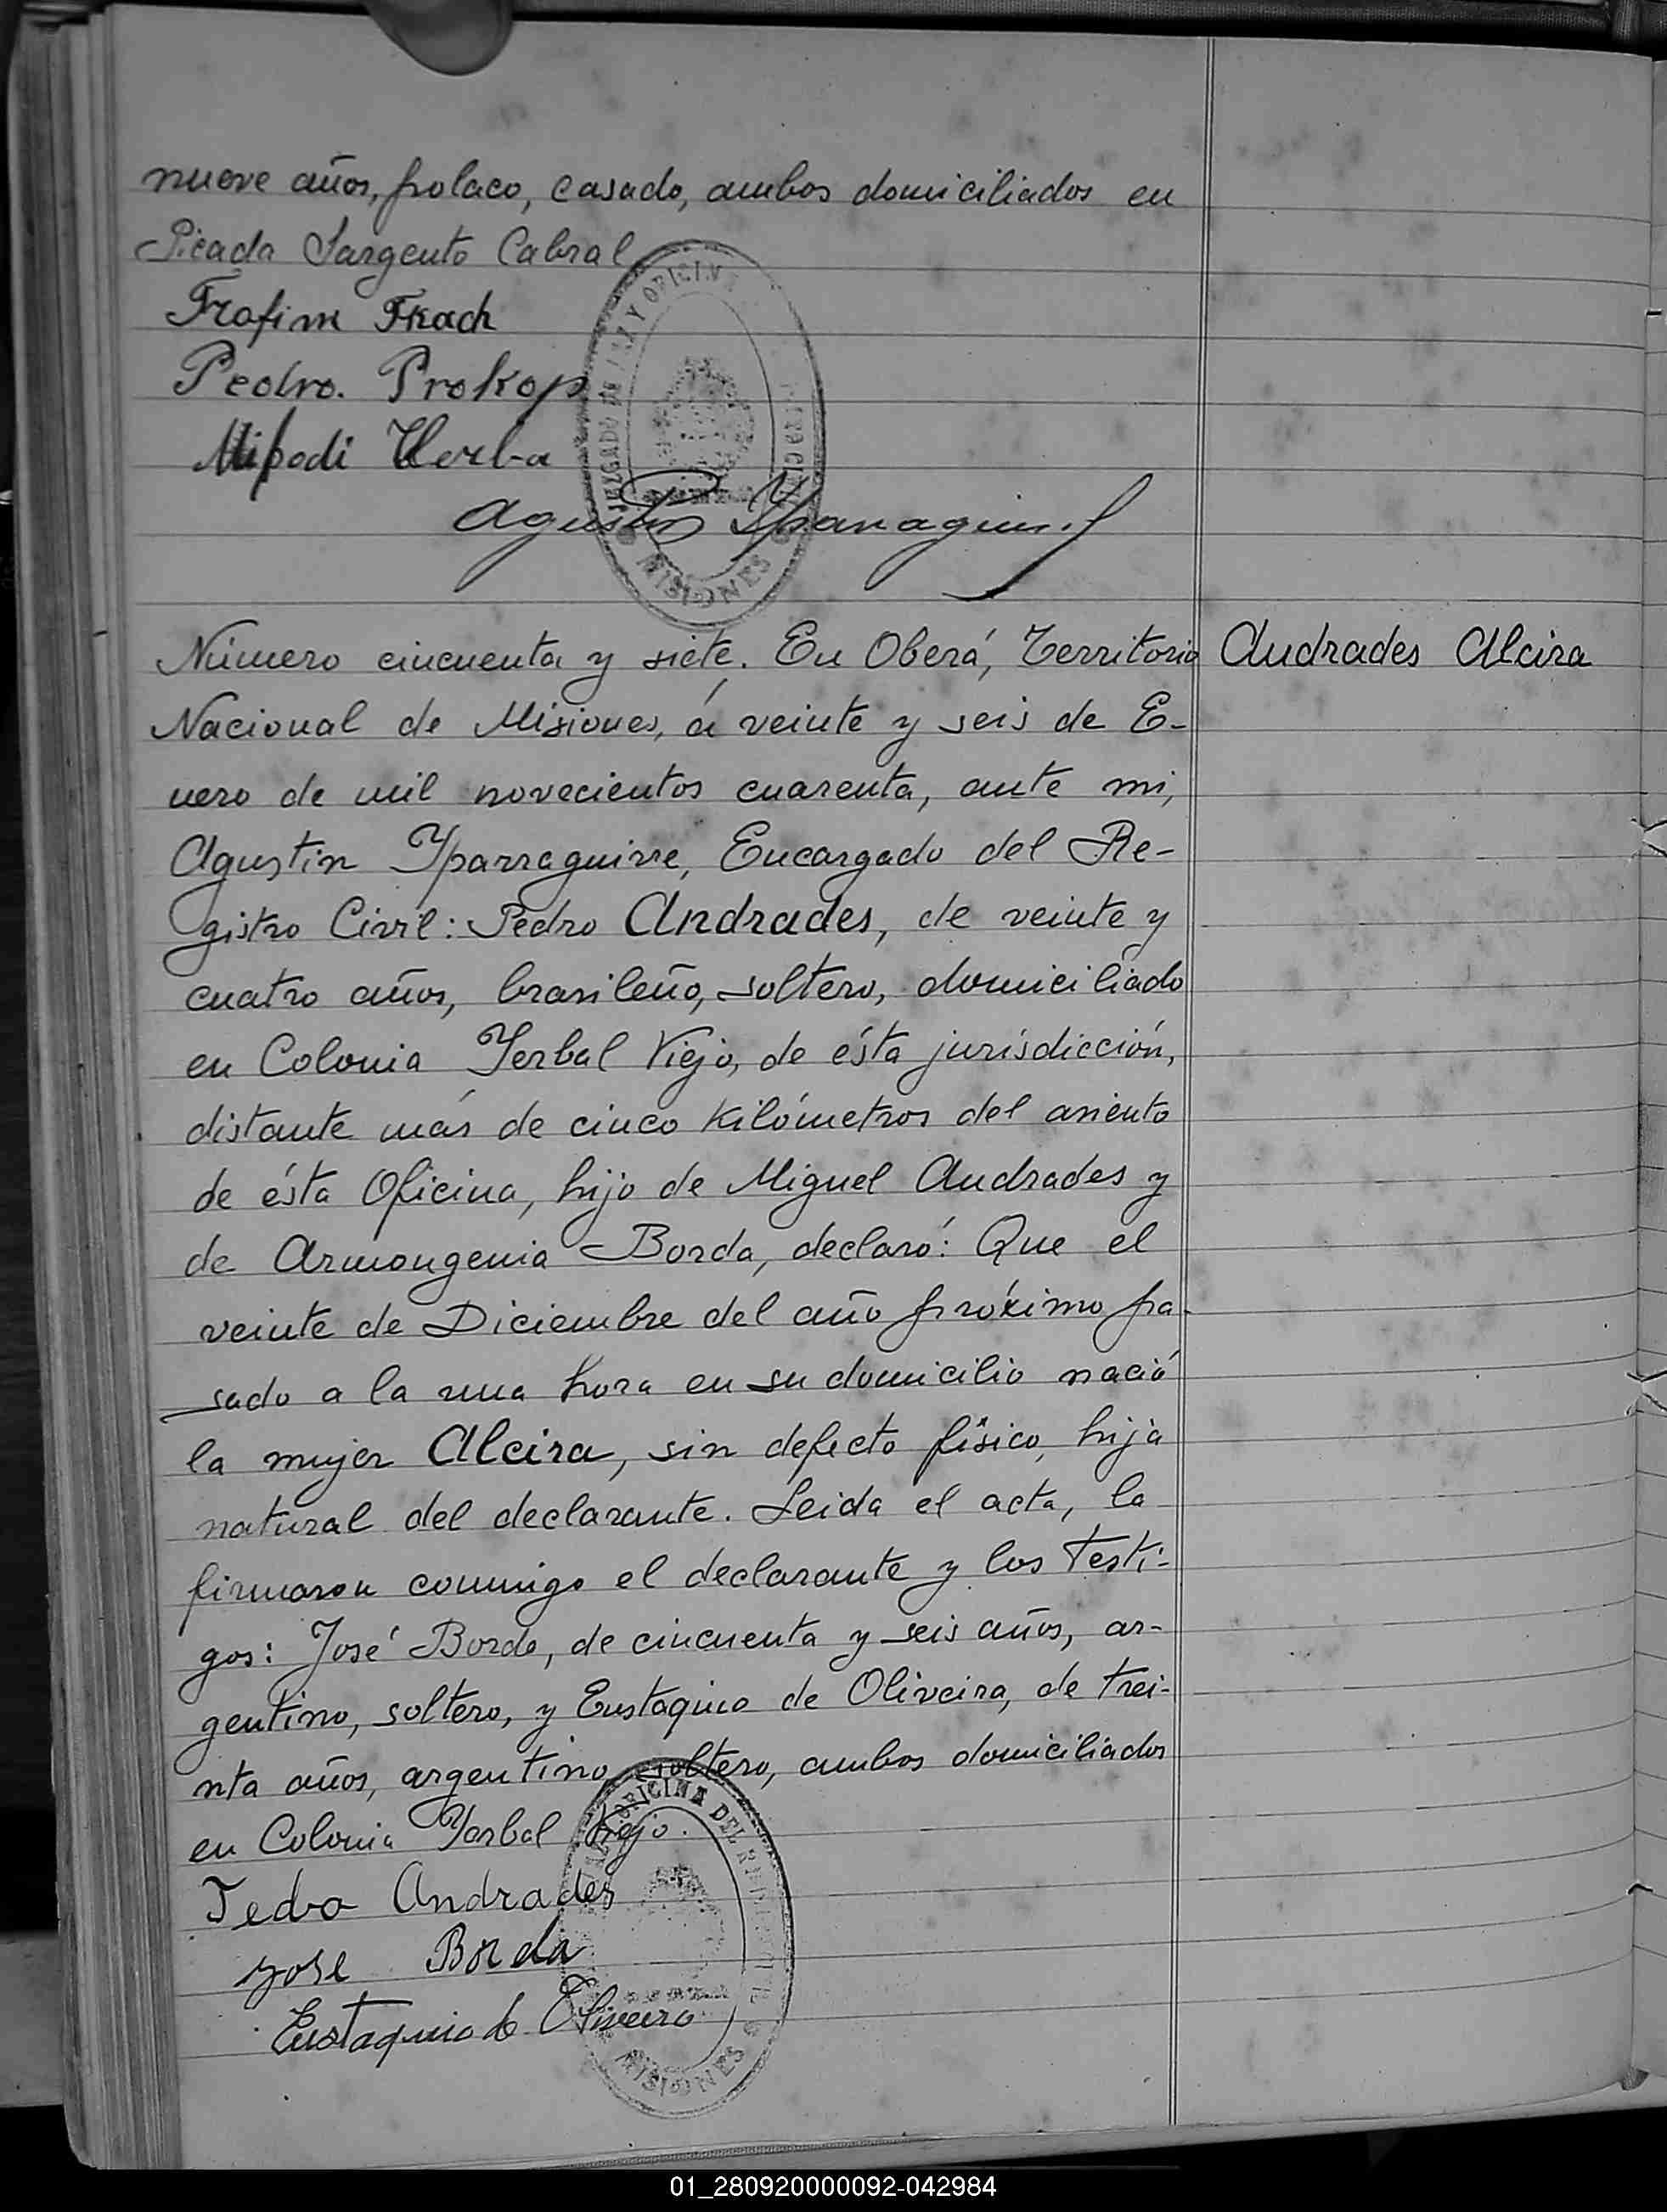 nueve años, polaco, casado, ambos domiciliados en
Picada Sargento Cabral
Trofim Tkach
Pedro. Prokop
Mipodi Werba
Agustin Yparraguirre
JUZGADO DE PAZ Y OFICINA
MISIONES
Número cincuenta y siete. En Oberá, Territorio
Andrades Alcira
Nacional de Misiones, á veinte y seis de E-
nero de mil novecientos cuarenta, ante mi,
Agustin Yparraguirre, Encargado del Re-
gistro Civil: Pedro Andrades, de veinte y
cuatro años, brasileño, soltero, domiciliado
en Colonia Yerbal Viejo, de ésta jurisdicción,
distante más de cinco kilómetros del asiento
de ésta Oficina, hijo de Miguel Andrades y
de Armongenia Borda, declaró: Que el
veinte de Diciembre del año próximo pa-
sado a la una hora en su domicilio nació
la mujer Alcira, sin defecto físico, hija
natural del declarante. Leida el acta, la
firmaron conmigo el declarante y los testi-
gos: José Borda, de cincuenta y seis años, ar-
gentino, soltero, y Eustaquio de Oliveira, de trei-
nta años, argentino, soltero, ambos domiciliados
en Colonia Yerbal Viejo.
Pedro Andrades
Jose Borda
Eustaquio de Oliveira
OFICINA DEL
MISIONES
01_280920000092-042984